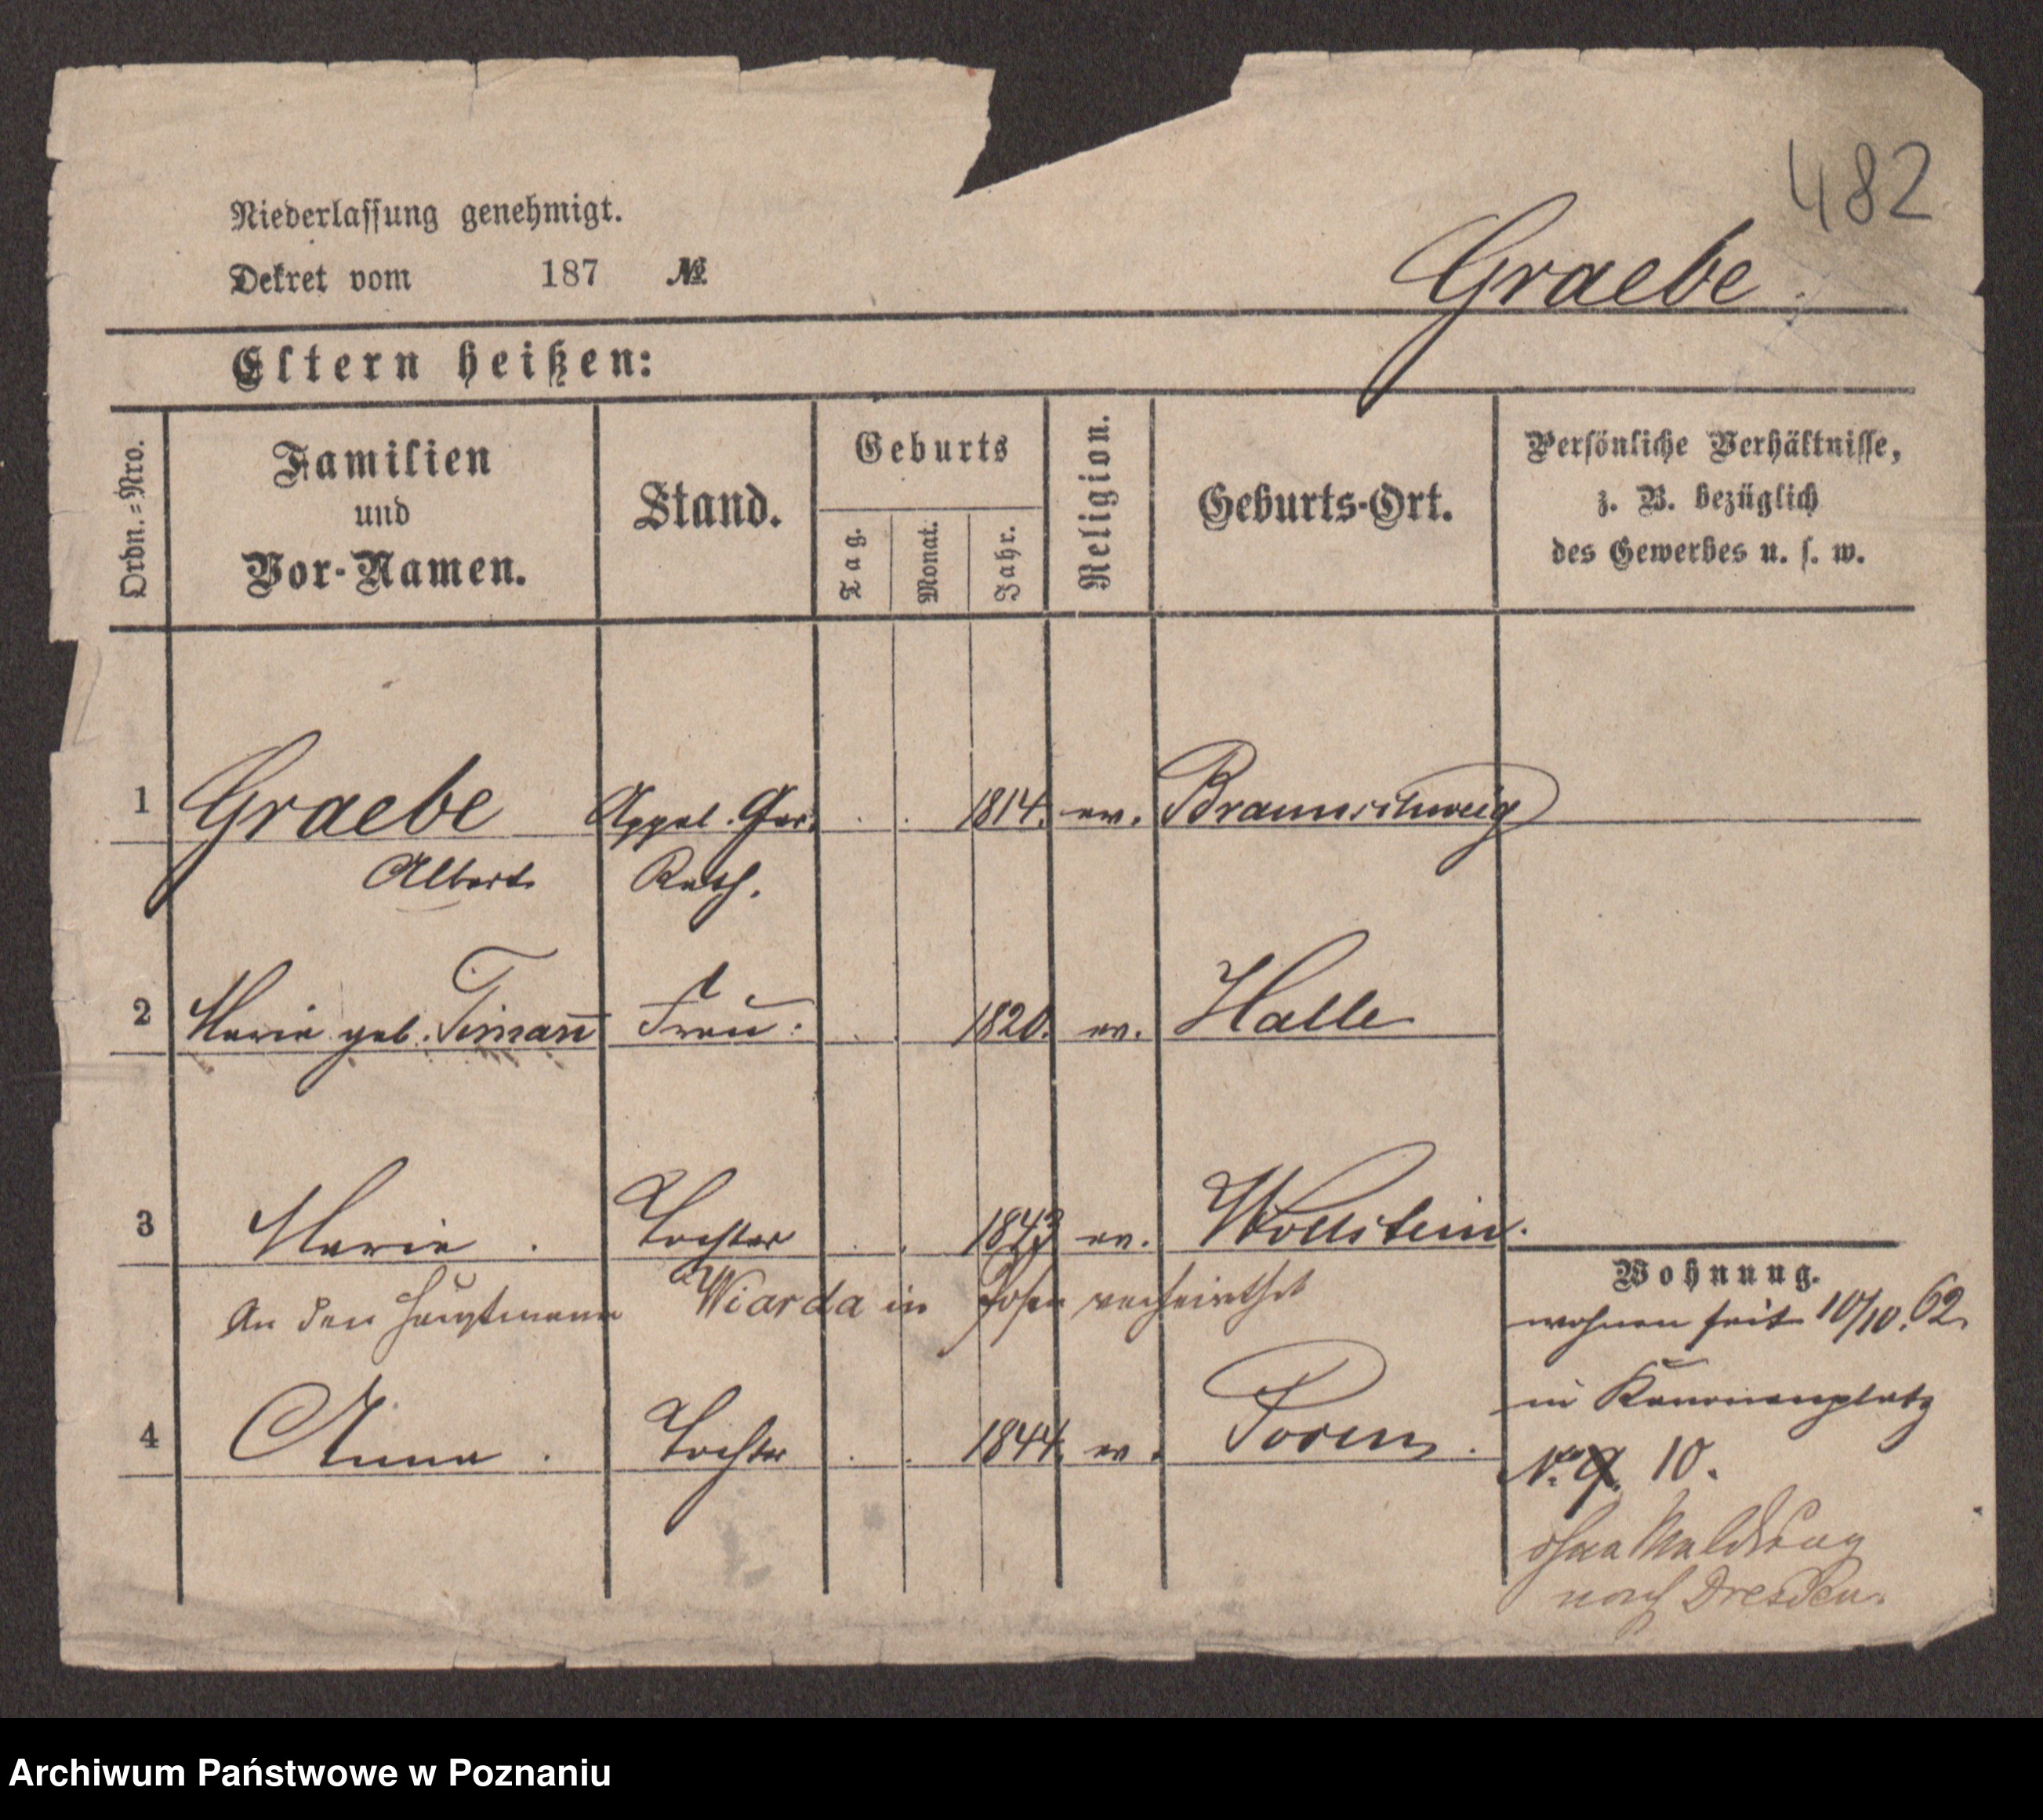 482
Niederlassung genehmigt.
Dekret vom 187 №
Graebe.
Eltern heißen:
Ordn.=Nro.
Familien
und
Vor-Namen.
Stand.
Geburts
Tag.
Monat.
Jahr.
Religion.
Geburts-Ort.
Persönliche Verhältnisse,
z. B. bezüglich
des Gewerbes u. s. w.
1 Graebe Appel. Ger. 1814. ev. Braunschweig
Albert Rath.
2 Marie geb. Timañ Frau. 1820. ev. Halle
3 Marie. Tochter 1843 ev. Wollstein.
An den Hauptmann Wiarda in Posen verheirathet
4 Anna. Tochter 1844. ev. Posen.
Wohnung.
wohnen seit 10/10. 62.
in Kanonenplatz
No. 9. 10.
ohne Meldung
nach Dresden.
Archiwum Państwowe w Poznaniu